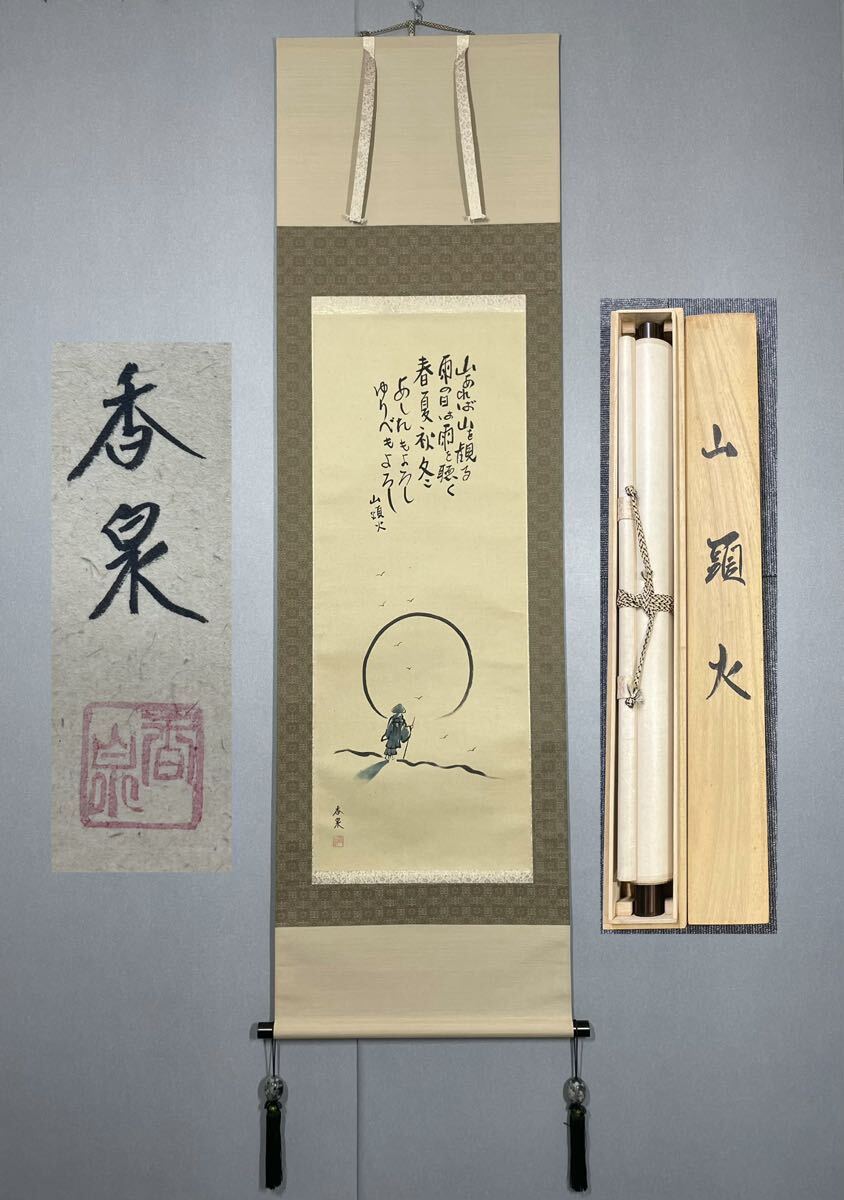 山あれば山を観る
雨の日は雨を聴く
春夏秋冬
あしたもよろし
ゆうべもよろし
山頭火
香泉
香泉
香泉
山頭火